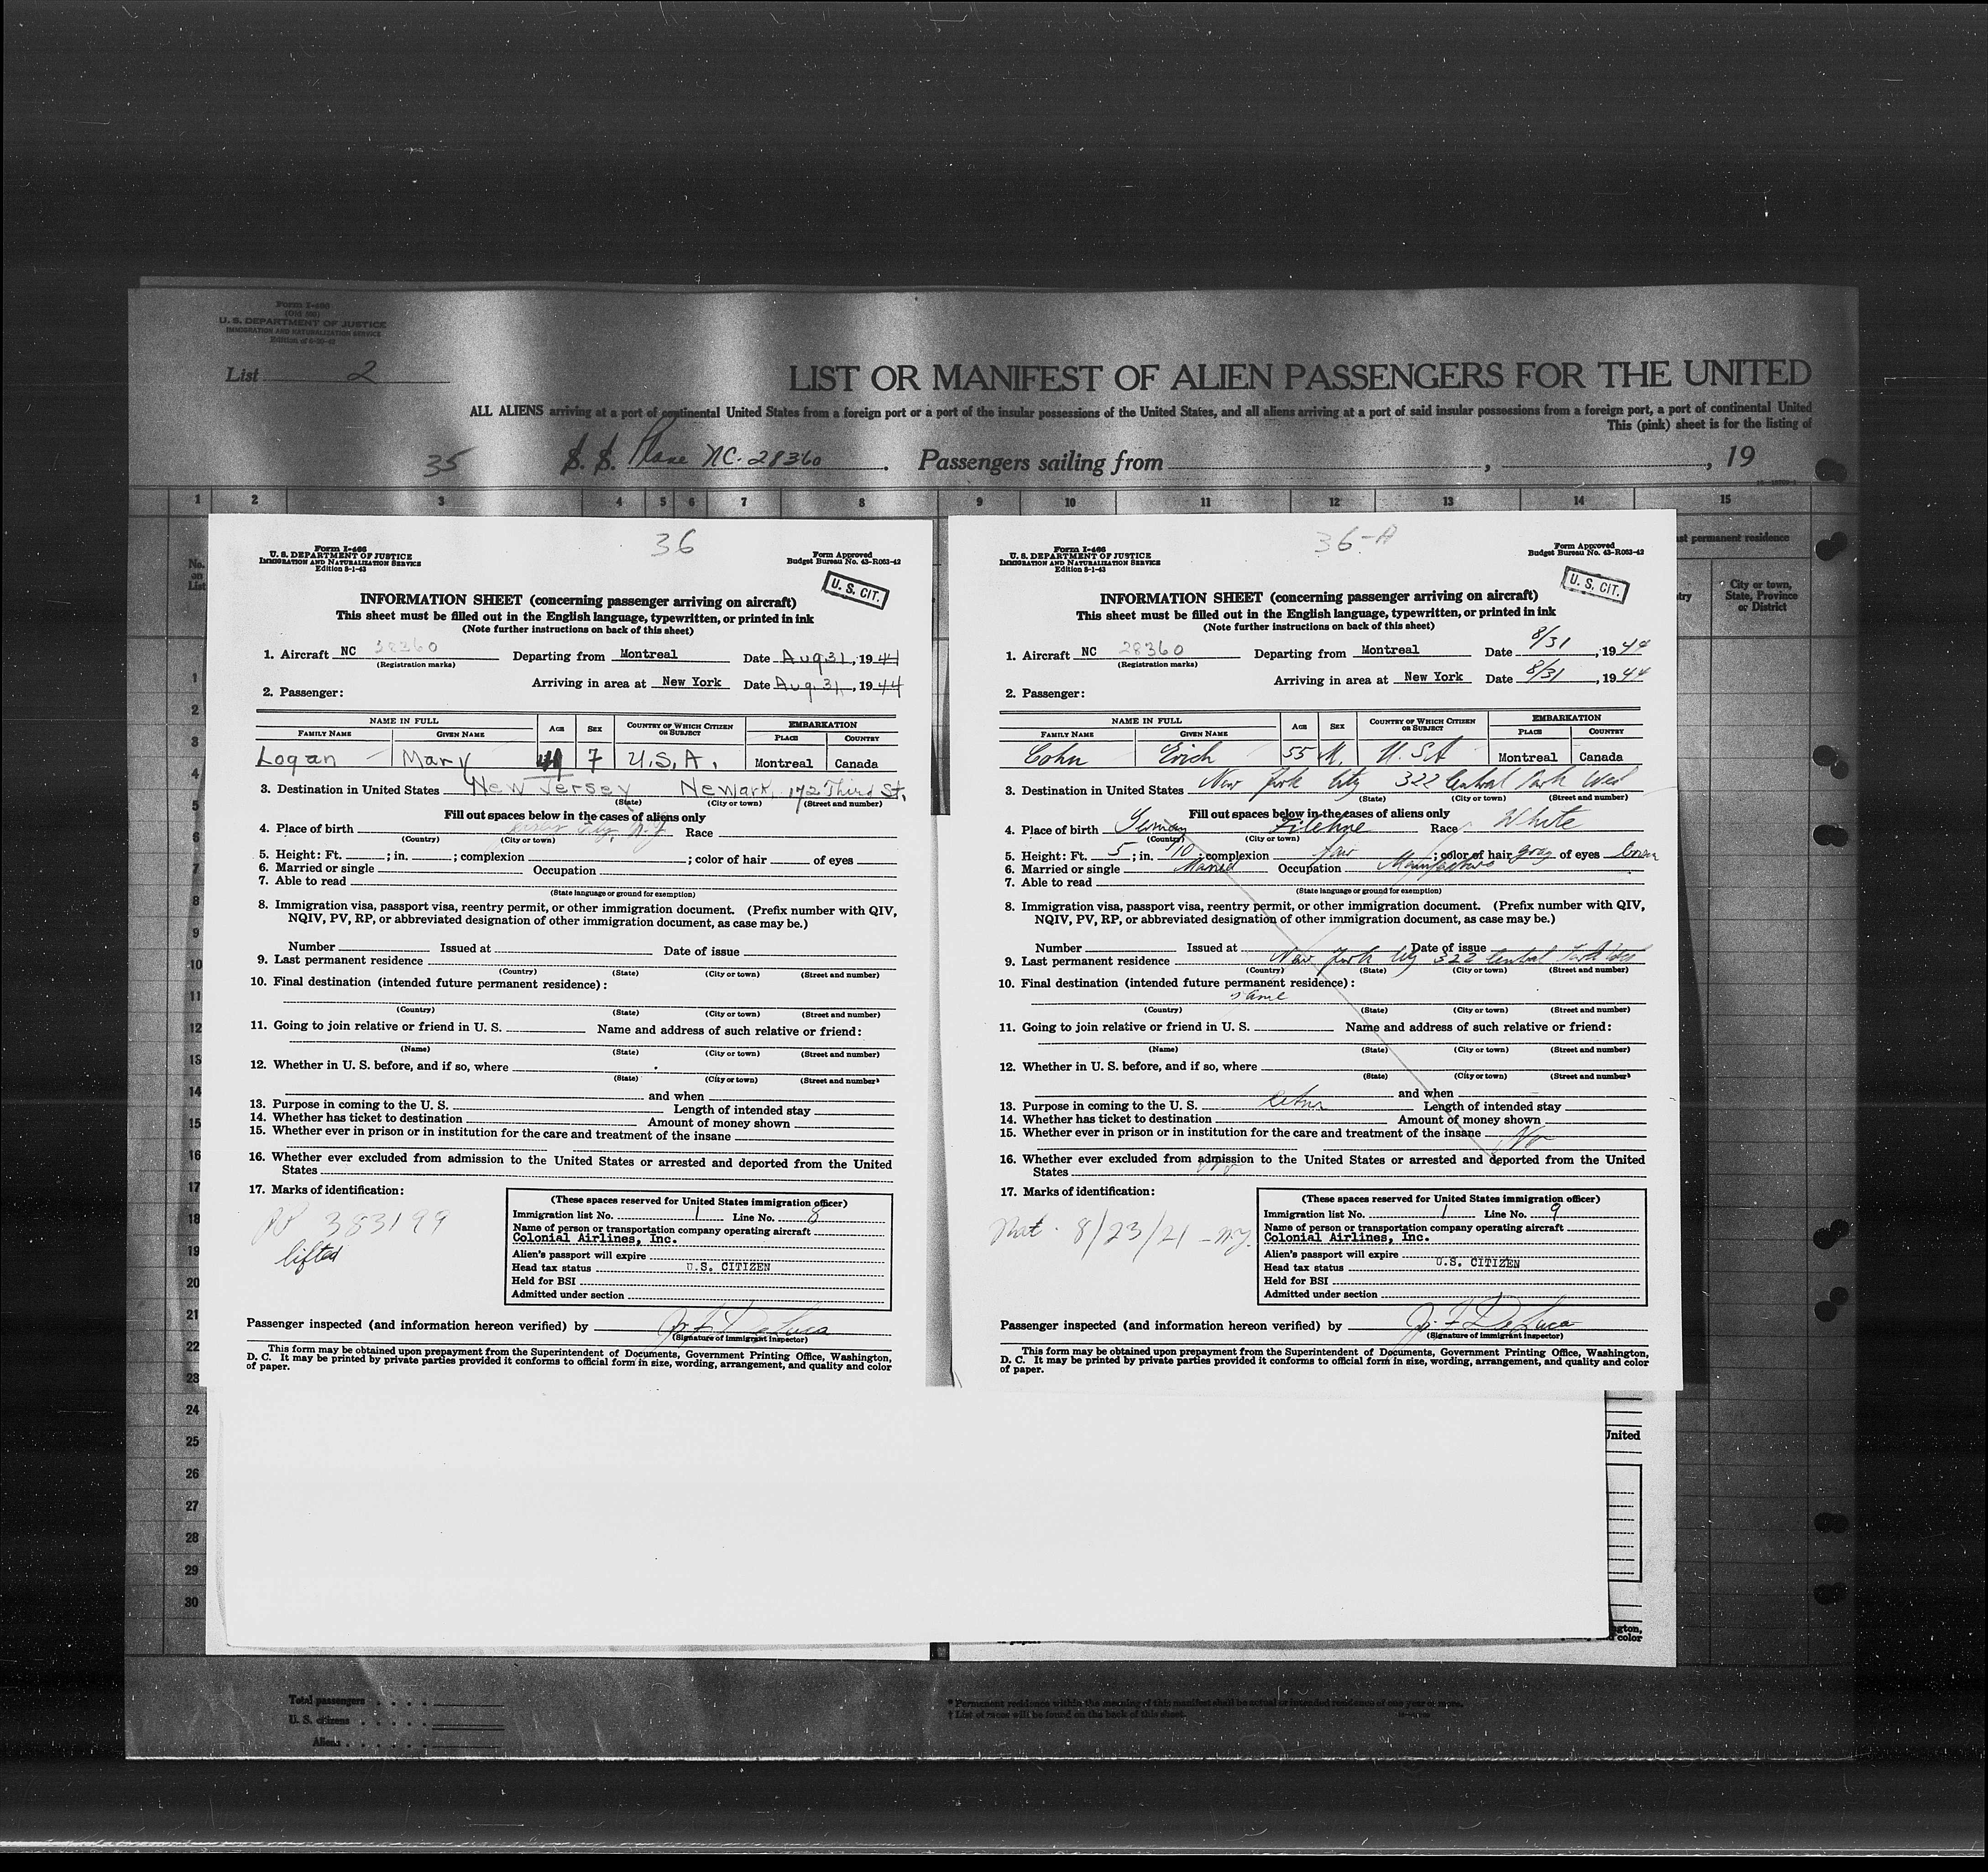 Form I-466
(Old 500)
U. S. DEPARTMENT OF JUSTICE
IMMIGRATION AND NATURALIZATION SERVICE
List 2
LIST OR MANIFEST OF ALIEN PASSENGERS FOR THE UNITED
ALL ALIENS arriving at a port of continental United States from a foreign port or a port of the insular possessions of the United States, and all aliens arriving at a port of said insular possessions from a foreign port, a port of continental United
This (pink) sheet is for the listing of
35 S. S. Plane NC-28360. Passengers sailing from , , 19
1 2 3 4 5 6 7 8 9 10 11 12 13 14 15
No. on List
st permanent residence
try
City or town, State, Province or District
1
2
3
4
5
6
7
8
9
10
11
12
13
14
15
16
17
18
19
20
21
22
23
24
25
26
27
28
29
30
36
Form I-466
U. S. DEPARTMENT OF JUSTICE
IMMIGRATION AND NATURALIZATION SERVICE
Edition 5-1-43
Form Approved
Budget Bureau No. 43-R063-42
U. S. CIT.
INFORMATION SHEET (concerning passenger arriving on aircraft)
This sheet must be filled out in the English language, typewritten, or printed in ink
(Note further instructions on back of this sheet)
1. Aircraft NC 28360 Departing from Montreal Date Aug 31, 1944
(Registration marks)
Arriving in area at New York Date Aug. 31, 1944
2. Passenger:
NAME IN FULL AGE SEX COUNTRY OF WHICH CITIZEN OR SUBJECT EMBARKATION
FAMILY NAME GIVEN NAME PLACE COUNTRY
Logan Mary 7 U.S.A. Montreal Canada
3. Destination in United States New Jersey Newark, 172 Third St.
(State) (City or town) (Street and number)
Fill out spaces below in the cases of aliens only
4. Place of birth N.J. Race
(Country) (City or town)
5. Height: Ft. ; in. ; complexion ; color of hair of eyes
6. Married or single Occupation
7. Able to read
(State language or ground for exemption)
8. Immigration visa, passport visa, reentry permit, or other immigration document. (Prefix number with QIV,
NQIV, PV, RP, or abbreviated designation of other immigration document, as case may be.)
Number Issued at Date of issue
9. Last permanent residence
(Country) (State) (City or town) (Street and number)
10. Final destination (intended future permanent residence):
(Country) (State) (City or town) (Street and number)
11. Going to join relative or friend in U. S. Name and address of such relative or friend:
(Name) (State) (City or town) (Street and number)
12. Whether in U. S. before, and if so, where
(State) (City or town) (Street and number)
and when
13. Purpose in coming to the U. S. Length of intended stay
14. Whether has ticket to destination Amount of money shown
15. Whether ever in prison or in institution for the care and treatment of the insane
16. Whether ever excluded from admission to the United States or arrested and deported from the United
States
17. Marks of identification:
PP 383199
lifted
(These spaces reserved for United States immigration officer)
Immigration list No. 1 Line No. 8
Name of person or transportation company operating aircraft
Colonial Airlines, Inc.
Alien's passport will expire
Head tax status U.S. CITIZEN
Held for BSI
Admitted under section
Passenger inspected (and information hereon verified) by J. F. De Luca
(Signature of immigrant inspector)
This form may be obtained upon prepayment from the Superintendent of Documents, Government Printing Office, Washington,
D. C. It may be printed by private parties provided it conforms to official form in size, wording, arrangement, and quality and color
of paper.
36-A
Form I-466
U. S. DEPARTMENT OF JUSTICE
IMMIGRATION AND NATURALIZATION SERVICE
Edition 5-1-43
Form Approved
Budget Bureau No. 43-R063-42
U. S. CIT.
INFORMATION SHEET (concerning passenger arriving on aircraft)
This sheet must be filled out in the English language, typewritten, or printed in ink
(Note further instructions on back of this sheet)
1. Aircraft NC 28360 Departing from Montreal Date 8/31, 1944
(Registration marks)
Arriving in area at New York Date 8/31, 1944
2. Passenger:
NAME IN FULL AGE SEX COUNTRY OF WHICH CITIZEN OR SUBJECT EMBARKATION
FAMILY NAME GIVEN NAME PLACE COUNTRY
Cohn Erich 55 M. U.SA Montreal Canada
3. Destination in United States New York City 322 Central Park West
(State) (City or town) (Street and number)
Fill out spaces below in the cases of aliens only
4. Place of birth Germany Filehne Race White
(Country) (City or town)
5. Height: Ft. 5; in. 10; complexion fair; color of hair gray of eyes brown
6. Married or single Married Occupation
7. Able to read
(State language or ground for exemption)
8. Immigration visa, passport visa, reentry permit, or other immigration document. (Prefix number with QIV,
NQIV, PV, RP, or abbreviated designation of other immigration document, as case may be.)
Number Issued at Date of issue
9. Last permanent residence New York City 322 Central Park West
(Country) (State) (City or town) (Street and number)
10. Final destination (intended future permanent residence):
same
(Country) (State) (City or town) (Street and number)
11. Going to join relative or friend in U. S. Name and address of such relative or friend:
(Name) (State) (City or town) (Street and number)
12. Whether in U. S. before, and if so, where
(State) (City or town) (Street and number)
and when
13. Purpose in coming to the U. S. Length of intended stay
14. Whether has ticket to destination Amount of money shown
15. Whether ever in prison or in institution for the care and treatment of the insane No
16. Whether ever excluded from admission to the United States or arrested and deported from the United
States No
17. Marks of identification:
Nat. 8/23/21 - N.Y.
(These spaces reserved for United States immigration officer)
Immigration list No. 1 Line No. 9
Name of person or transportation company operating aircraft
Colonial Airlines, Inc.
Alien's passport will expire
Head tax status U.S. CITIZEN
Held for BSI
Admitted under section
Passenger inspected (and information hereon verified) by J. F. De Luca
(Signature of immigrant inspector)
This form may be obtained upon prepayment from the Superintendent of Documents, Government Printing Office, Washington,
D. C. It may be printed by private parties provided it conforms to official form in size, wording, arrangement, and quality and color
of paper.
United
gton,
color
Total passengers
U. S. citizens
Aliens
* Permanent residence within the meaning of this manifest shall be actual or intended residence of one year or more.
† List of races will be found on the back of this sheet.